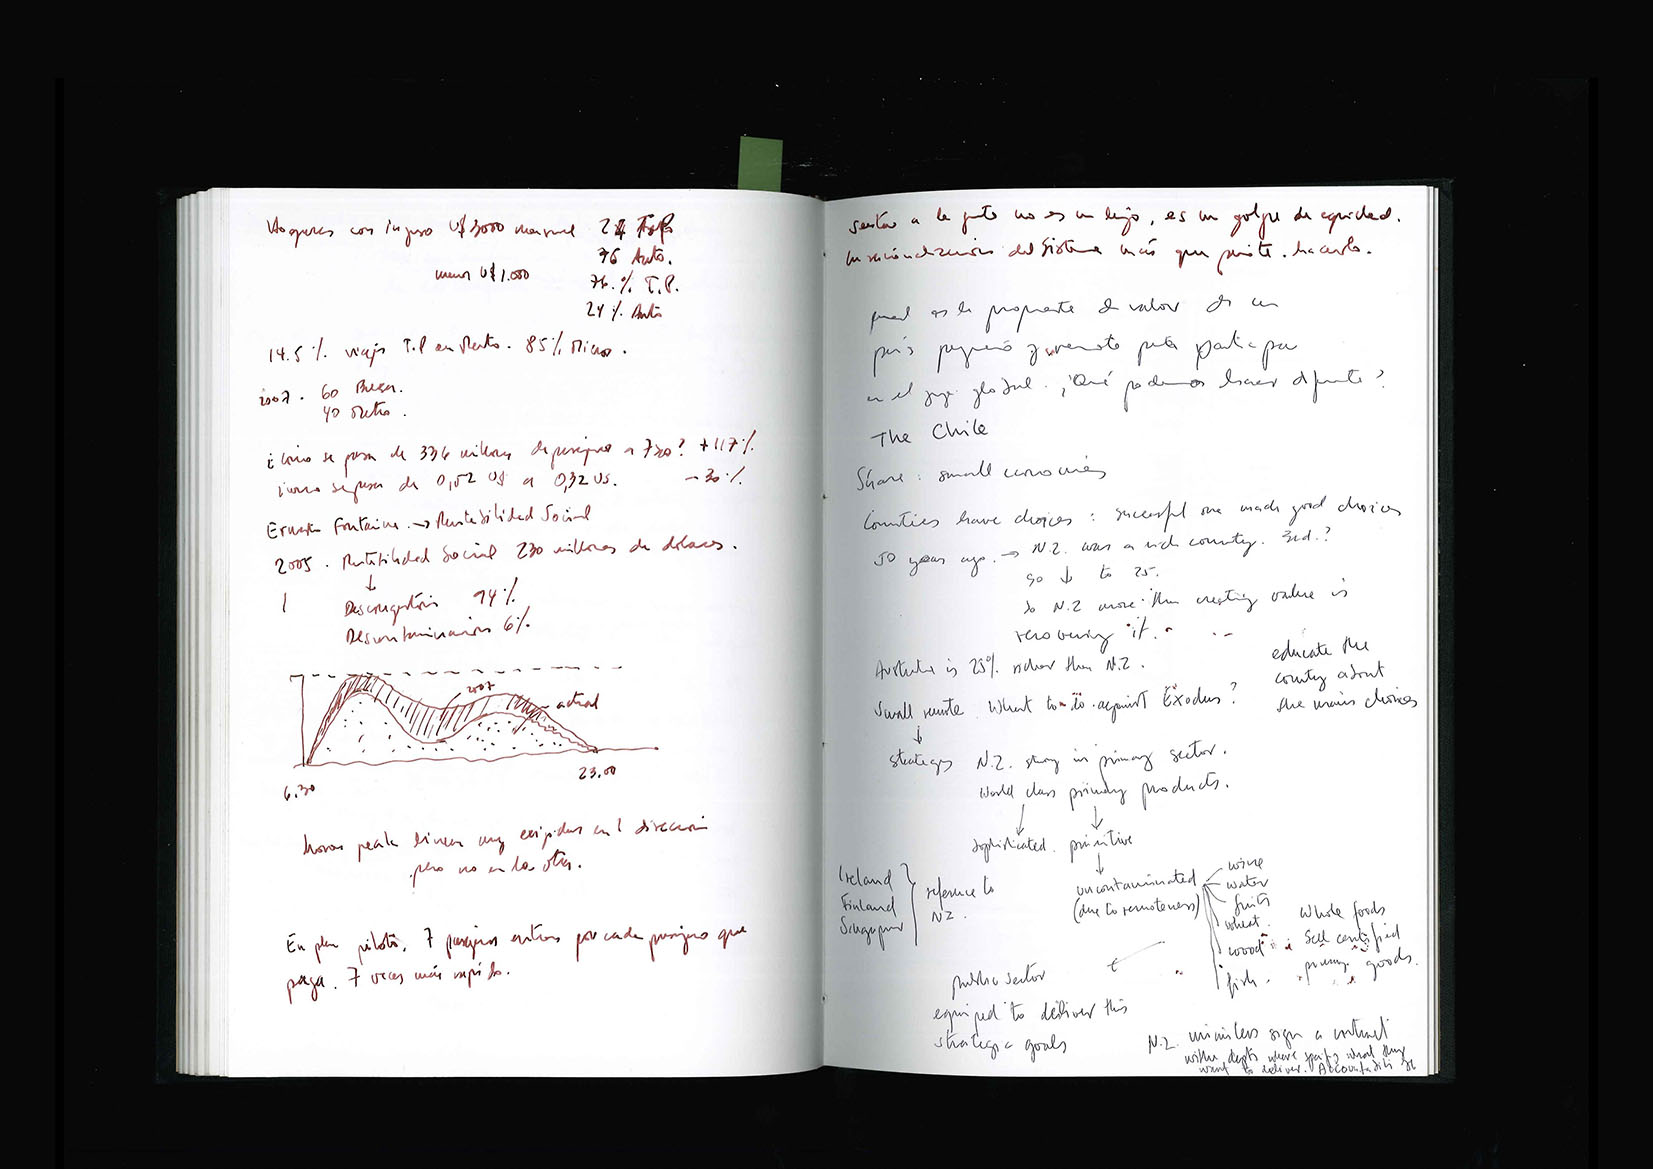 Hogares con ingreso U$ 3000 mensual 24 T.P.
76 Auto.
menos U$ 1.000 76.% T.P.
24% Auto
14.5% viajes T.P en Metro. 85% Micro.
2007. 60 Buses.
40 Metro.
¿Cómo se pasa de 336 millones de pasajeros a 730? +117%
¿Cómo se pasa de 0,52 US a 0,32 US. -30%
Ernesto Fontaine → Rentabilidad Social
2005. Rentabilidad Social 230 millones de dólares.
↓
Descongestión 94%
Descontaminación 6%
2007
actual
6.30
23.00
horas peak linea muy ocupadas en 1 dirección
pero no en la otra.
En plan piloto, 7 pasajeros entran por cada pasajero que
paga. 7 veces más rápido.
sentar a la gente no es un lujo, es un golpe de equidad.
del Sistema más que permite hacerlo.
es la propuesta de valor de un
país pequeño y remoto para participar
en el juego global. ¿Qué podemos hacer diferente?
The Chile
Share: small economies
Countries have choices: successful one made good choices
50 years ago → N.Z. was a rich country. 3rd.?
go ↓ to 25.
So N.Z more than creating value is
recovering it.
Australia is 25% richer than N.Z.
educate the
country about
the main choices
Small remote What to do against Exodus?
↓
strategy N.Z. stay in primary sector.
World class primary products.
sophisticated primitive
uncontaminated
(due to remoteness)
wine
water
fruits
wheat
wood
fish.
Whole foods
Sell certified
primary goods.
Ireland
Finland
Singapur
reference to
NZ.
public sector
equiped to deliver this
strategic goals
N.Z. ministers sign a contract
within depts where specify what they
want to deliver.